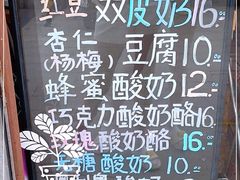 红豆 双皮奶16.
杏仁
(杨梅) 豆腐10.
蜂蜜酸奶12.
巧克力酸奶酪16.
玫瑰酸奶酪 16.
无糖酸奶 10.